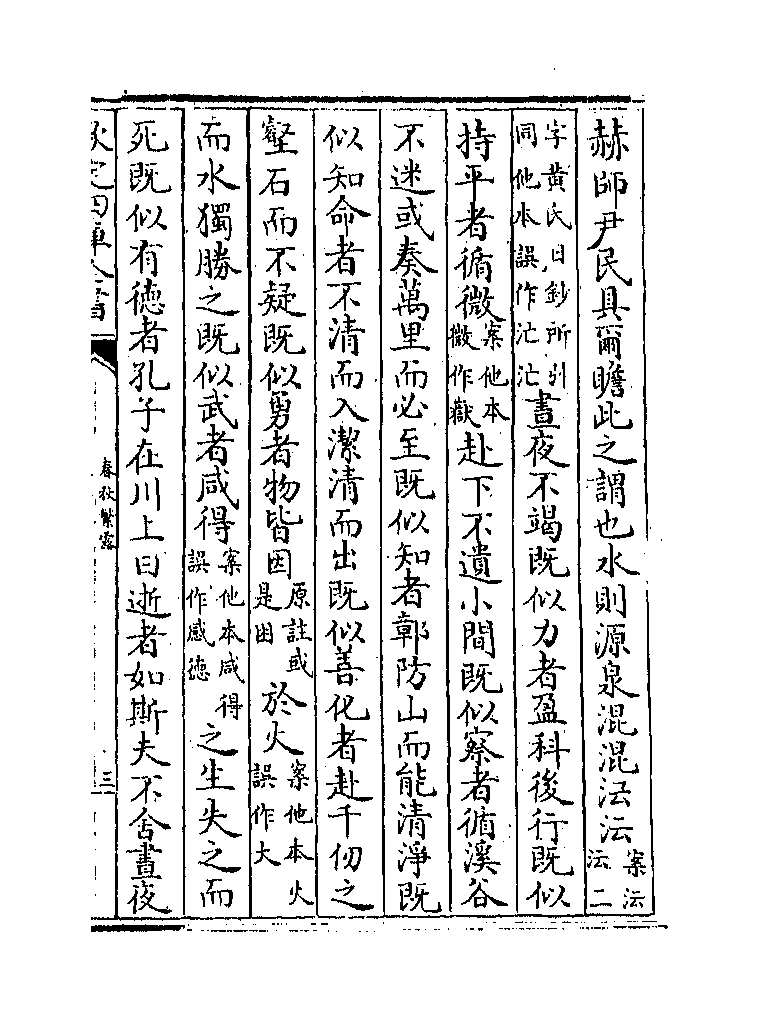 赫師尹民具爾瞻此之謂也水則源泉混混沄沄案沄沄二
字黄氏日鈔所引同他本誤作汒汒晝夜不竭既似力者盈科後行既似
持平者循微案他本微作赴下不遺小間既似察者循溪谷
不迷或奏萬里而必至既似知者鄣防山而能清淨既
似知命者不清而入潔清而出既似善化者赴千仞之
壑石而不疑既似勇者物皆因原註或是困於火案他本火誤作大
而水獨勝之既似武者咸得案他本咸得誤作感徳之生失之而
死既似有徳者孔子在川上曰逝者如斯夫不舍晝夜
欽定四庫全書
春秋繁露
三